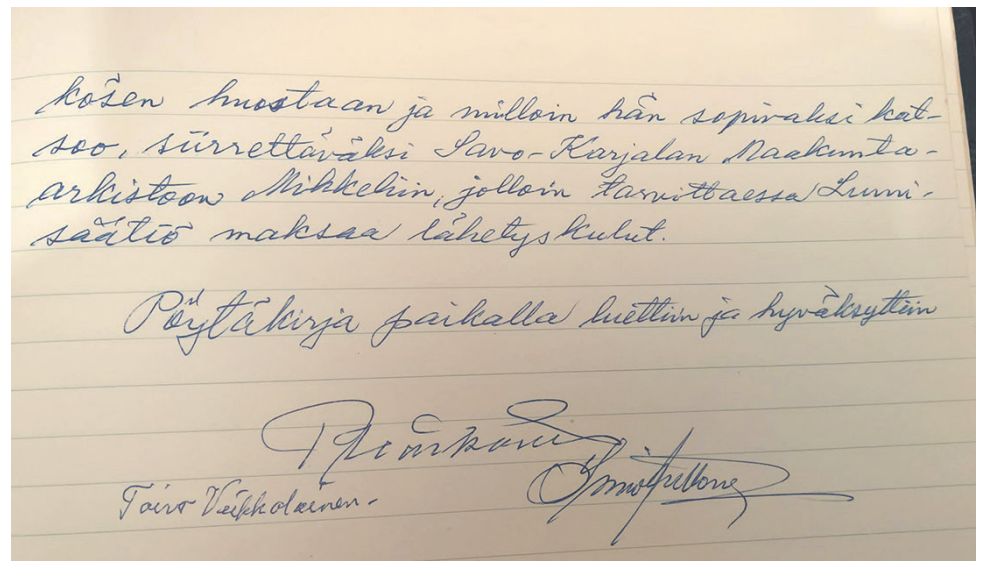 kosen huostaan ja milloin hän sopivaksi kat-
soo, siirrettäväksi Savo-Karjalan Maakunta-
arkistoon Mikkeliin, jolloin tarvittaessa Lumi-
säätiö maksaa lähetyskulut.
Pöytäkirja paikalla luettiin ja hyväksyttiin
Toivo Veikkolainen.